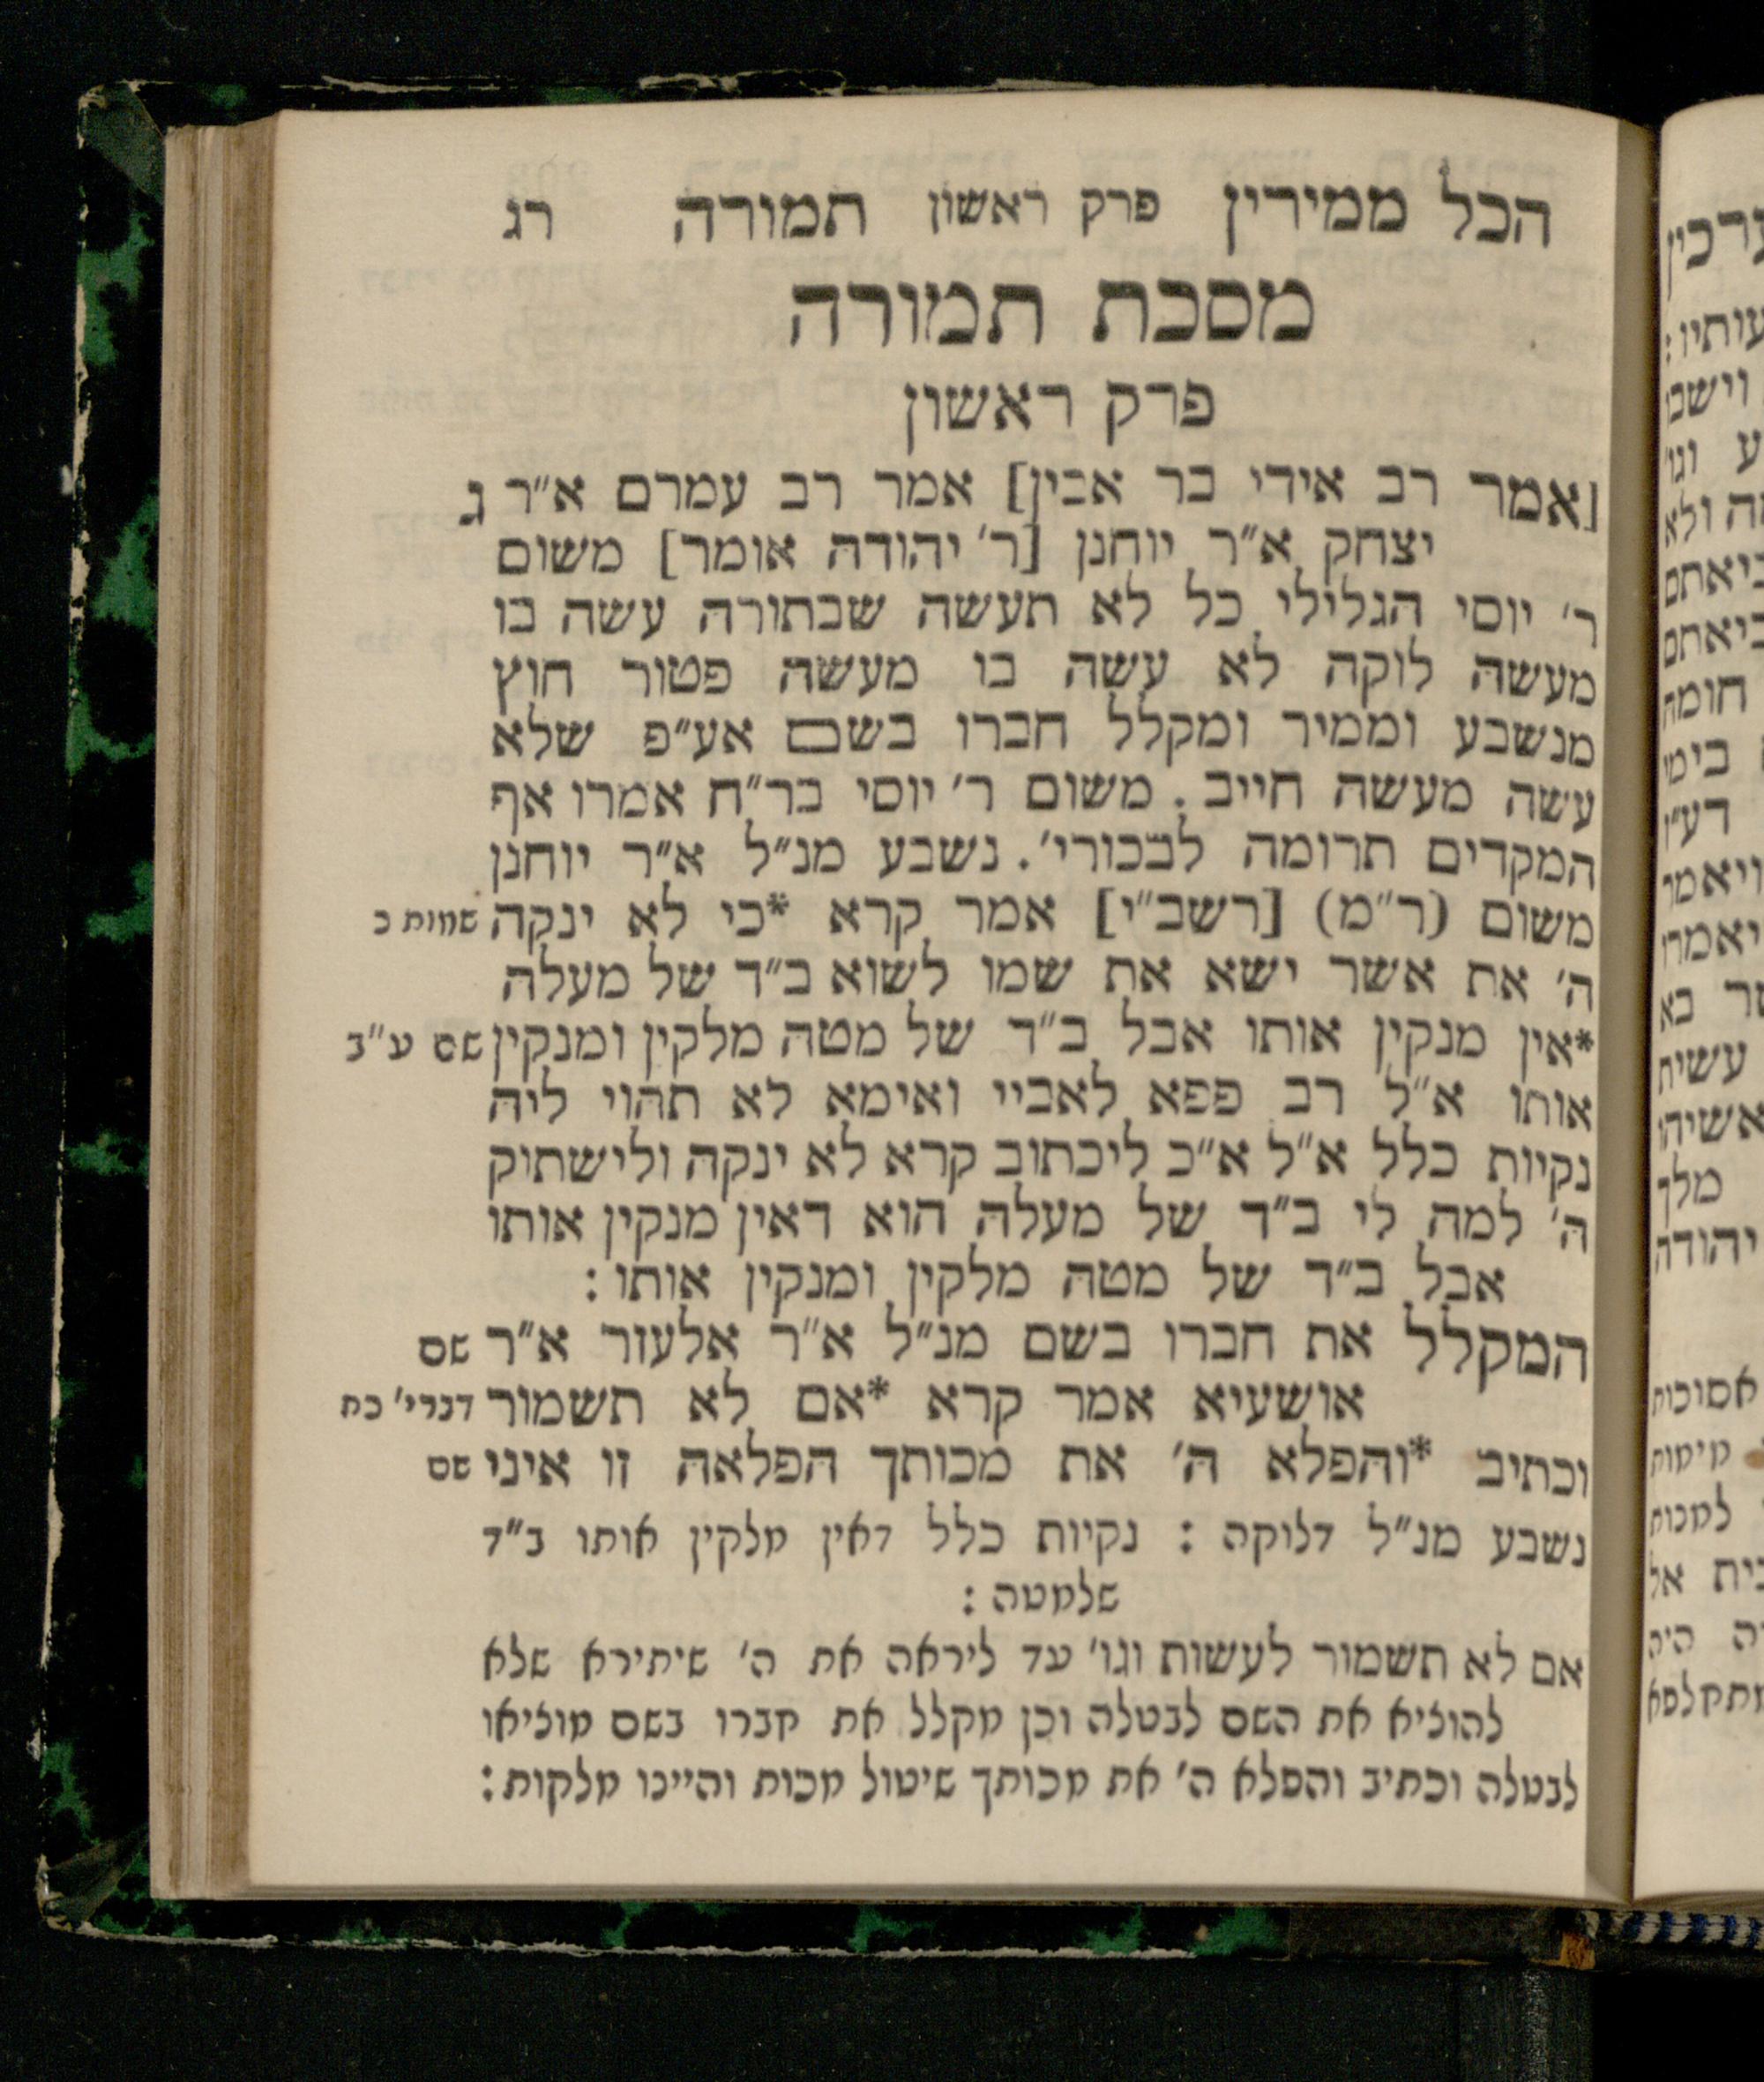 הכל ממירין פרק ראשון תמורה רג
מסכת תמורה
פרק ראשון
[אמר רב אידי בר אבין] אמר רב עמרם א״ר ג
יצחק א״ר יוחנן [ר׳ יהודה אומר] משום
ר׳ יוסי הגלילי כל לא תעשה שבתורה עשה בו
מעשה לוקה לא עשה בו מעשה פטור חוץ
מנשבע וממיר ומקלל חברו בשם אע״פ שלא
עשה מעשה חייב. משום ר׳ יוסי בר״ח אמרו אף
המקדים תרומה לבכורי׳. נשבע מנ״ל א״ר יוחנן
משום (ר״מ) [רשב״י] אמר קרא *כי לא ינקה שמות כ
ה׳ את אשר ישא את שמו לשוא ב״ד של מעלה
*אין מנקין אותו אבל ב״ד של מטה מלקין ומנקין שם ע״ב
אותו א״ל רב פפא לאביי ואימא לא תהוי ליה
נקיות כלל א״ל א״כ ליכתוב קרא לא ינקה ולישתוק
ה׳ למה לי ב״ד של מעלה הוא דאין מנקין אותו
אבל ב״ד של מטה מלקין ומנקין אותו :
המקלל את חברו בשם מנ״ל א״ר אלעזר א״ר שם
אושעיא אמר קרא *אם לא תשמור דברי׳ כח
וכתיב *והפלא ה׳ את מכותך הפלאה זו איני שם
נשבע מנ״ל דלוקה : נקיות כלל דאין מלקין אותו ב״ד
שלמטה :
אם לא תשמור לעשות וגו׳ עד ליראה את ה׳ שיתירא שלא
להוציא את השם לבטלה וכן מקלל את חברו בשם מוציאו
לבטלה וכתיב והפלא ה׳ את מכותך שיטול מכות והיינו מלקות :